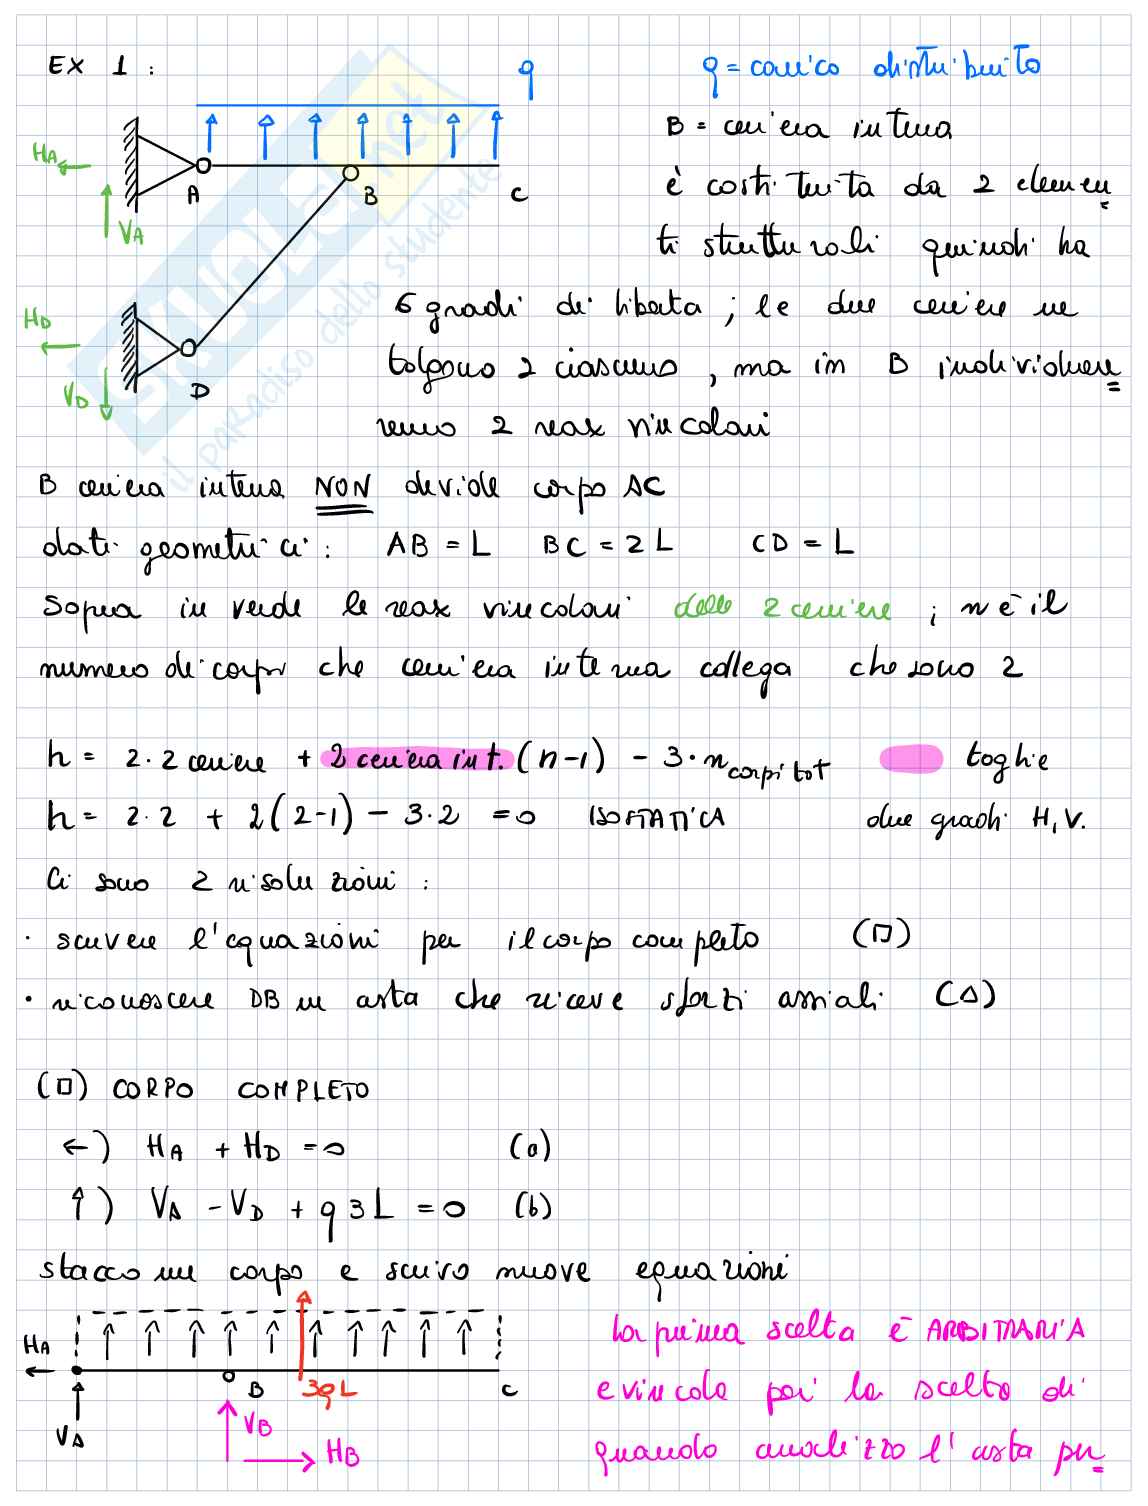 EX 1 :
q
q = carico distribuito
HA
A
B
C
VA
B = cerniera interna
è costituita da 2 elemen
ti strutturali quindi ha
HD
VD
D
6 gradi di libertà ; le due cerniere ne
tolgono 2 ciascuno , ma in B individuere
remo 2 reax vincolari
B cerniera interna NON divide corpo AC
dati geometrici : AB = L BC = 2L CD = L
Sopra in verde le reax vincolari delle 2 cerniere ; n è il
numero di corpi che cerniera interna collega che sono 2
h = 2·2 cerniere + 2 cerniera int. (n-1) - 3·n corpi tot toglie
h = 2·2 + 2(2-1) - 3·2 = 0 ISOSTATICA due gradi H,V.
Ci sono 2 risoluzioni :
· scrivere l'equazioni per il corpo completo (□)
· riconoscere DB un asta che riceve sforzi assiali (Δ)
(□) CORPO COMPLETO
←) HA + HD = 0 (a)
↑) VA - VD + q3L = 0 (b)
stacco un corpo e scrivo nuove equazioni
HA
VA
B
3qL
C
VB
HB
la prima scelta è ARBITRARIA
e vincola poi la scelta di
quando analizzo l'asta per
SKUOLA.net
il paradiso dello studente